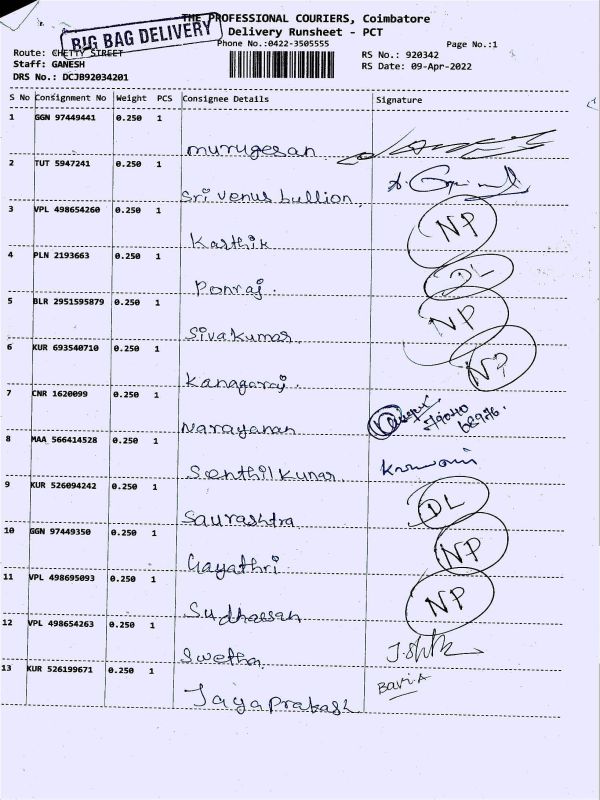 THE PROFESSIONAL COURIERS, Coimbatore
BIG BAG DELIVERY
Delivery Runsheet - PCT
Phone No.:0422-3505555
Page No.:1
Route: CHETTY STREET
RS No.: 920342
Staff: GANESH
RS Date: 09-Apr-2022
DRS No.: DCJB92034201
S No Consignment No Weight PCS Consignee Details Signature
1 GGN 97449441 0.250 1
murugesan
2 TUT 5947241 0.250 1
Sri venus bullion
3 VPL 498654260 0.250 1
Karthik NP
4 PLN 2193663 0.250 1
Ponraj. DL
5 BLR 2951595879 0.250 1
Sivakumar NP
6 KUR 693540710 0.250 1
Kanagaraj. NP
7 CNR 1620099 0.250 1
Narayanan
8 MAA 566414528 0.250 1
Senthilkumar
9 KUR 526094242 0.250 1
Saurashtra DL
10 GGN 97449350 0.250 1
Gayathri NP
11 VPL 498695093 0.250 1
Sudhassan NP
12 VPL 498654263 0.250 1
Swetha
13 KUR 526199671 0.250 1
Jayaprakash Bavi.A